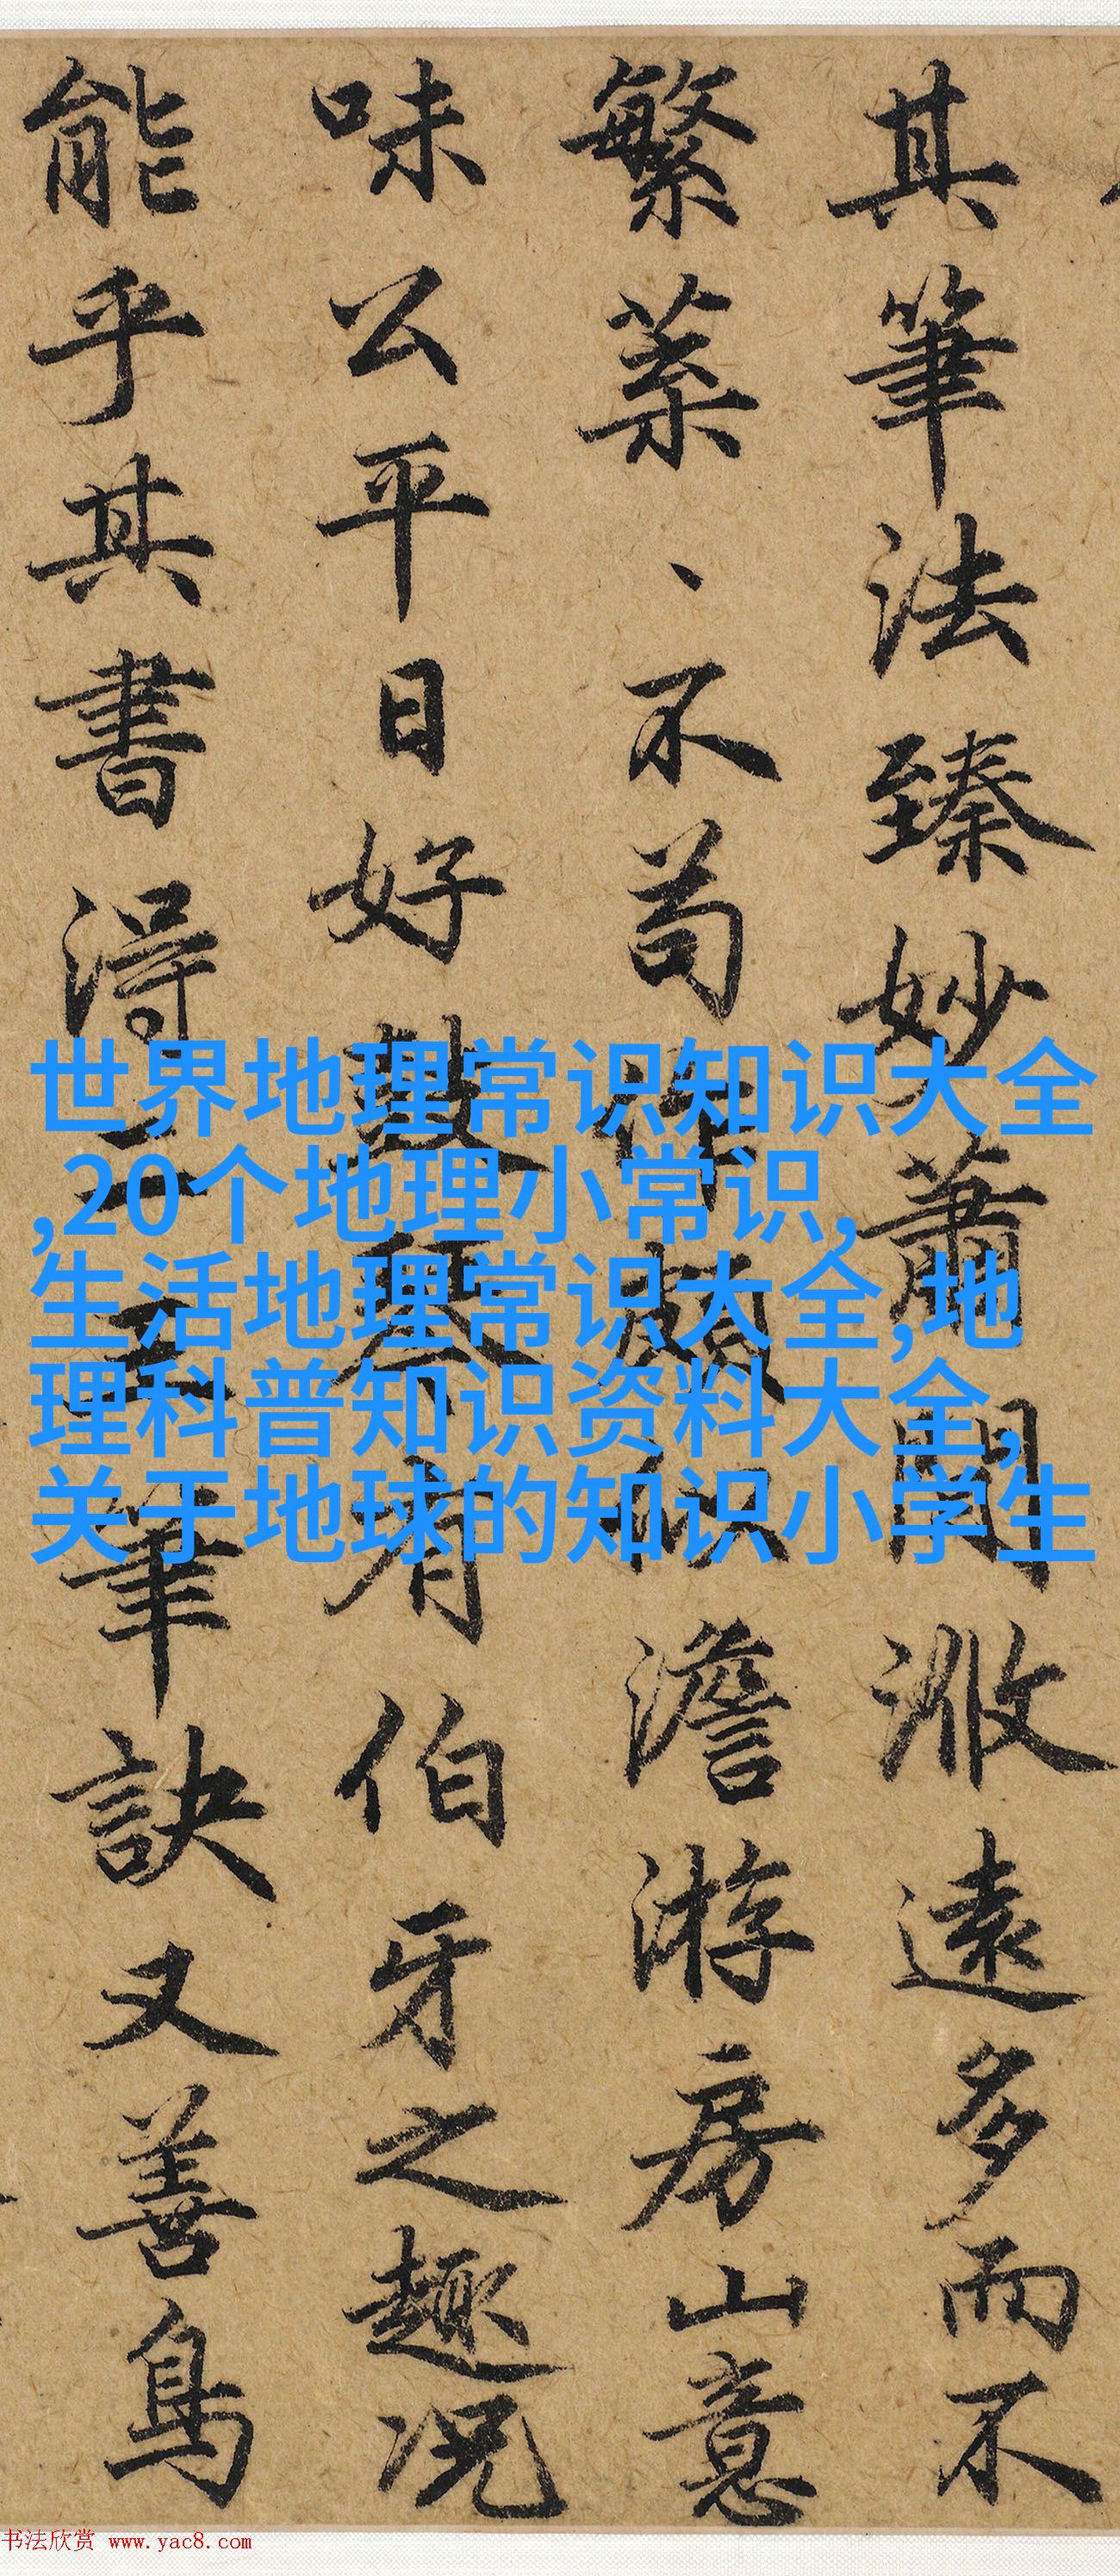 其筆法臻妙蕭閒𣲖遠多而不
繁葉、不苟作頗似澹游房山意
味公平日好鼓琴有伯牙之趣况
能乎其書得二王筆訣又善鳥
世界地理常识知识大全
,20个地理小常识,
生活地理常识大全,地
理科普知识资料大全,
关于地球的知识小学生
书法欣赏 www.yac8.com